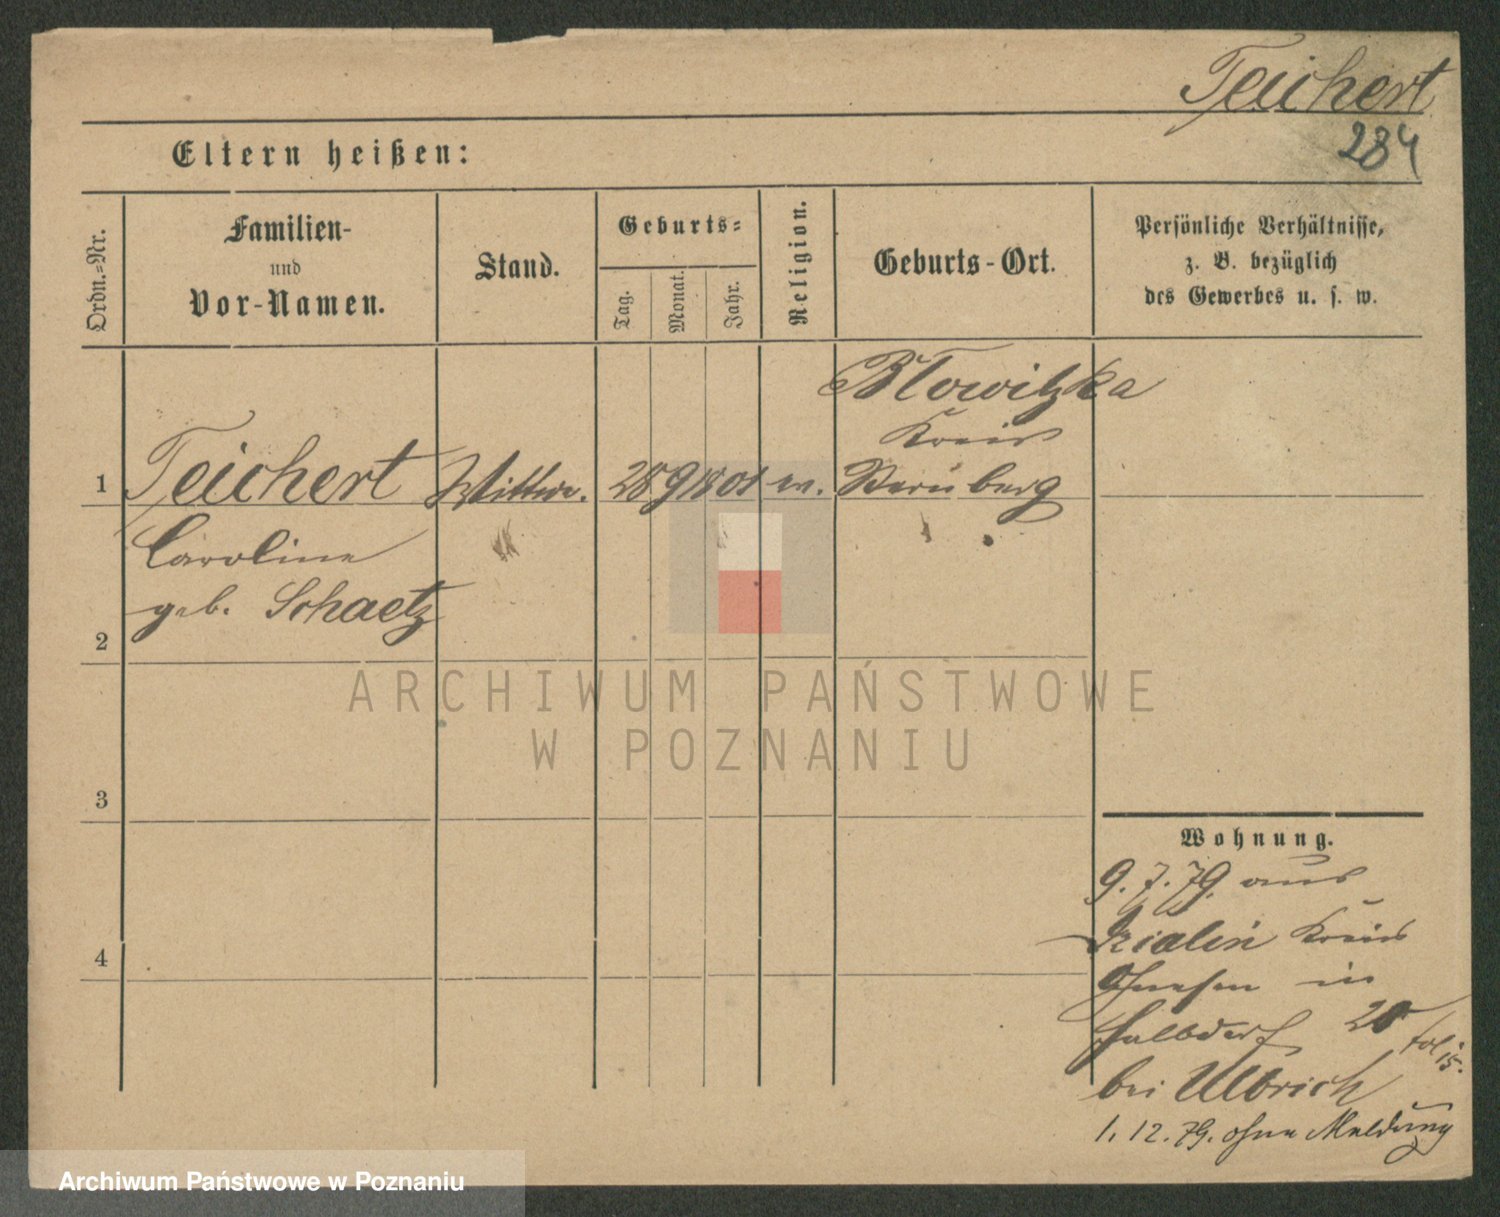 Teichert
284
Eltern heißen:
Ordn.=Nr.
Familien-
und
Vor-Namen.
Stand.
Geburts=
Tag.
Monat.
Jahr.
Religion.
Geburts-Ort.
Persönliche Verhältnisse,
z. B. bezüglich
des Gewerbes u. s. w.
Blowitzka
Kreis
1 Teichert Wittwe. 28 9 1801 ev. Sternberg
Caroline
geb. Schaetz
2
ARCHIWUM PAŃSTWOWE
W POZNANIU
3
Wohnung.
9.7.79. aus
Kreis
4
Gnesen in
Halbdorf 20
bei Ulbrich
1.12.79. ohne Meldung
Archiwum Państwowe w Poznaniu